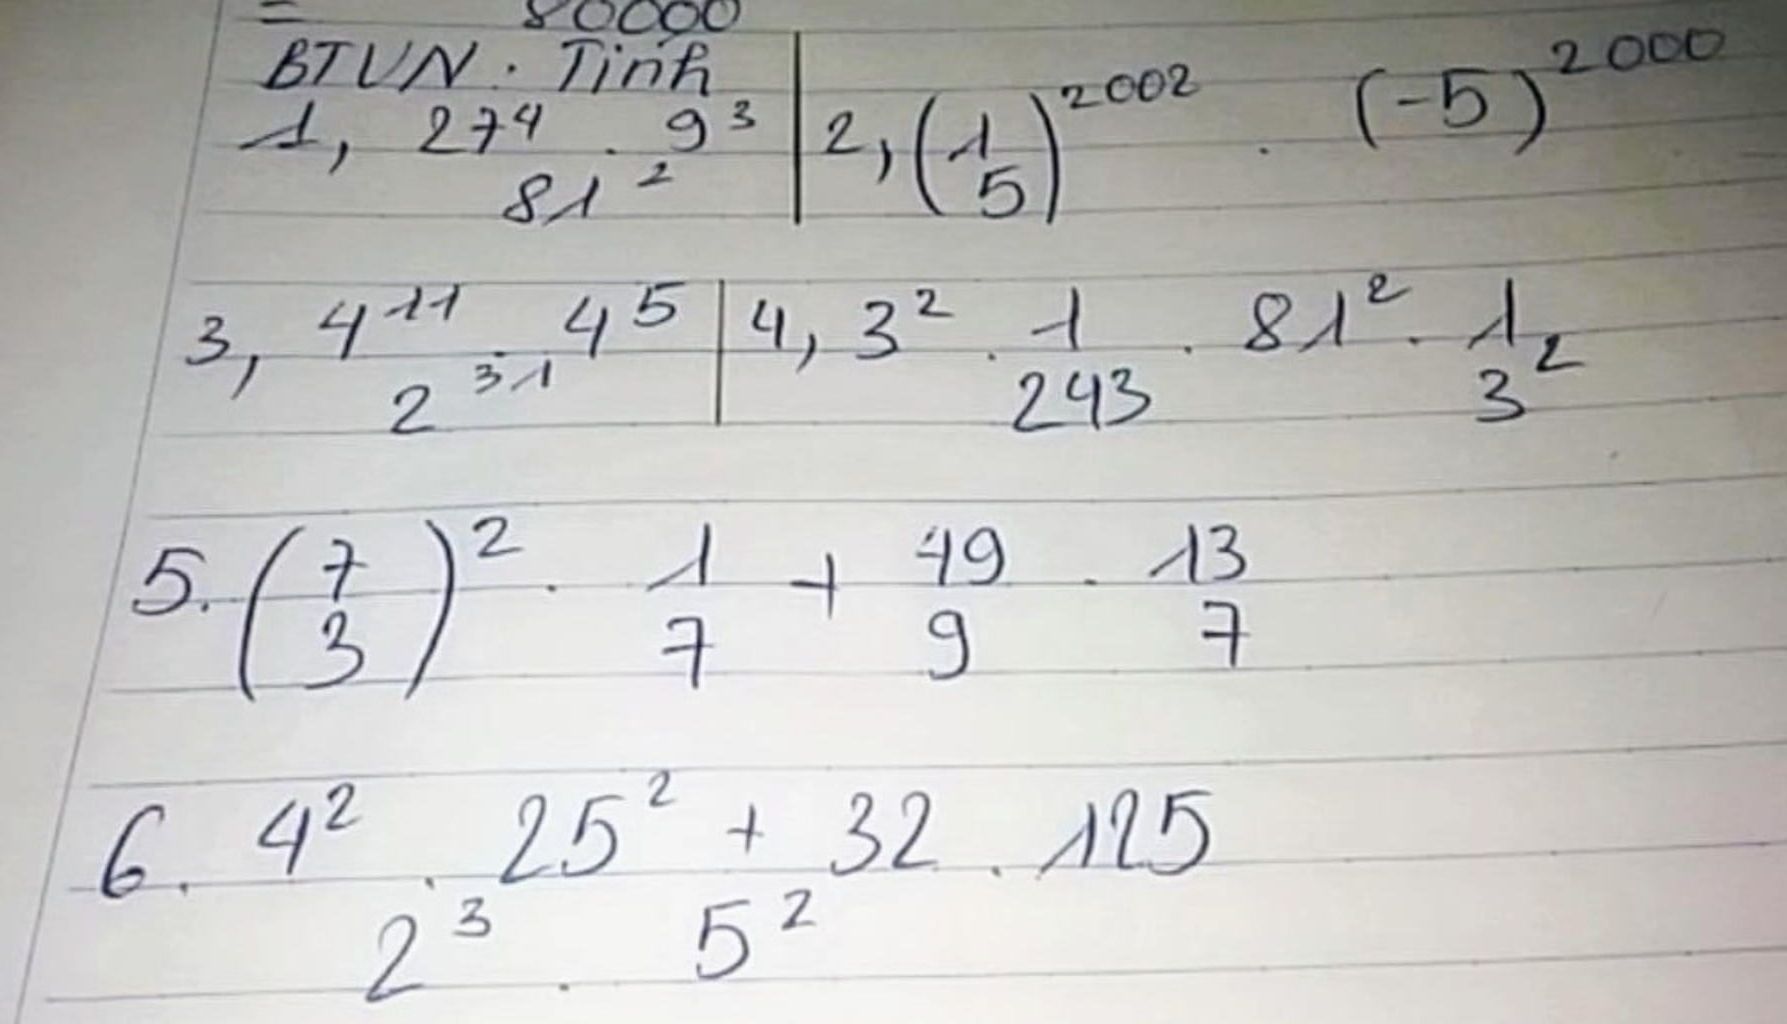 = 80000
BTVN. Tính
1, 27⁴ . 9³ | 2, (1/5)²⁰⁰² . (-5)²⁰⁰⁰
81²
3, 4¹¹ . 4⁵ | 4, 3² . 1/243 . 81² . 1/3²
2³¹
5. (7/3)² . 1/7 + 49/9 . 13/7
6. 4² . 25² + 32 . 125
2³ . 5²